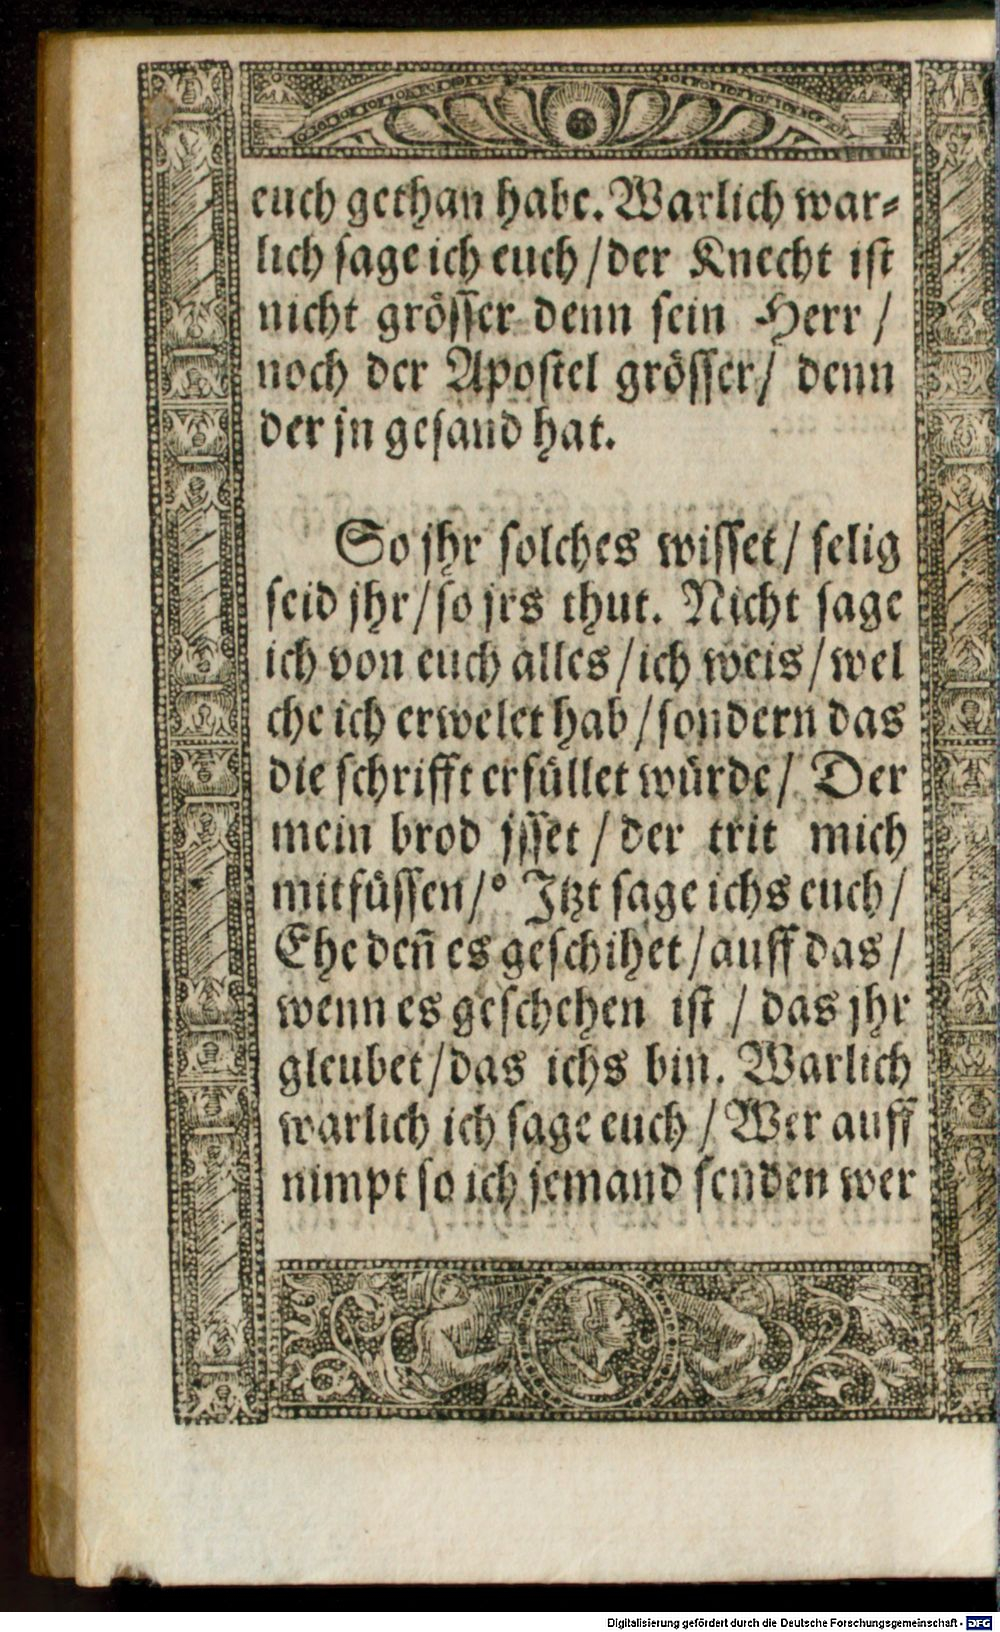 euch gethan habe. Warlich war⸗
lich ſage ich euch / der Knecht iſt
nicht gröſſer denn ſein Herr /
noch der Apoſtel gröſſer / denn
der jn geſand hat.
So jhr ſolches wiſſet / ſelig
ſeid jhr / ſo jrs thut. Nicht ſage
ich von euch alles / ich weis / wel
che ich erwelet hab / ſondern das
die ſchrifft erfüllet würde / Der
mein brod jſſet / der trit mich
mitfüſſen /° Jtzt ſage ichs euch /
Ehe deñ es geſchihet / auff das /
wenn es geſchehen iſt / das jhr
gleubet / das ichs bin. Warlich
warlich ich ſage euch / Wer auff
nimpt ſo ich jemand ſenden wer
Digitalisierung gefördert durch die Deutsche Forschungsgemeinschaft - DFG